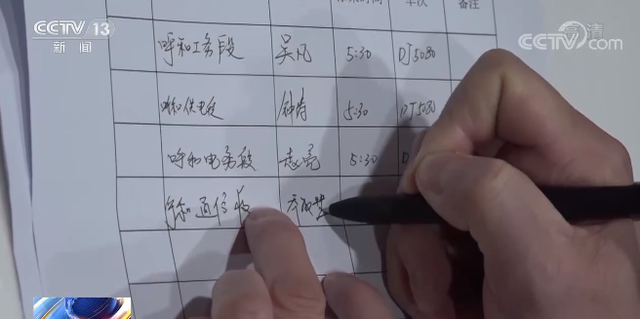 CCTV 13
新闻
高清
CCTV.com
车次
备注
呼和工务段 吴凡 5:30 DJ5080
呼和供电段 钟奇 5:30 DJ5080
呼和电务段 赵亮 5:30 D
呼和通信段